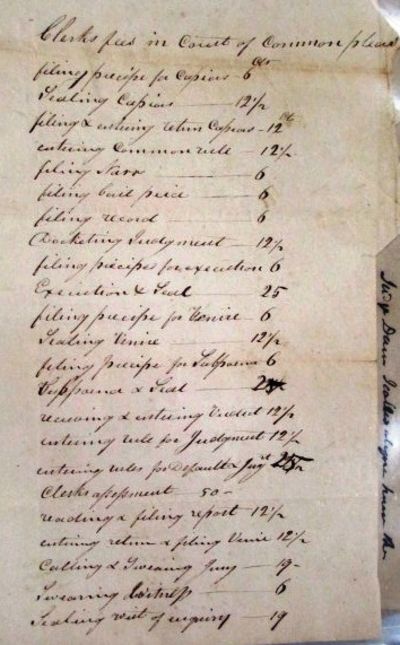 Clerks fees in Court of Common pleas
filing precipe for Capias 6 Cts
Sealing Capias — 12½
filing & entering return Capias - 12
entering Common rule — 12½
filing Narr — 6
filing bail piece — 6
filing record — 6
Docketing Judgment — 12½
filing precipes for execution 6
Execution & Seal — 25
filing precipe for Venire — 6
Sealing Venire — 12½
filing precipe for Subpoena 6
Subpoena & Seal —
receiving & entering Verdict 12½
entering rule for Judgment 12½
entering rules for Default & Jugt
Clerks assessment — 50 -
reading & filing report — 12½
entering return & filing Venire 12½
Calling & Swearing Jury — 19 -
Swearing Witness — 6
Sealing writ of inquiry — 19
Judge